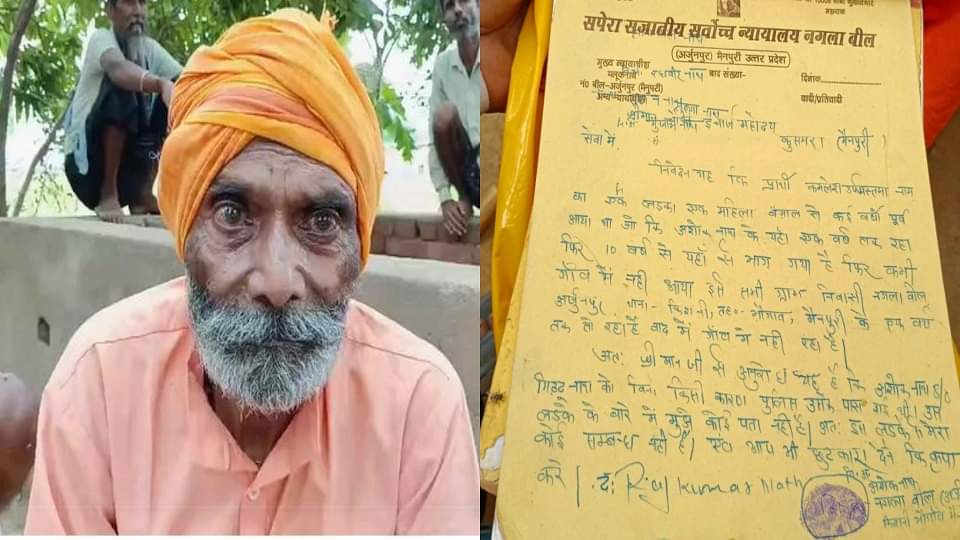 सपेरा सजातीय सर्वोच्च न्यायालय नगला बील
(अर्जुनपुर) मैनपुरी उत्तर प्रदेश
मुख्य न्यायाधीश
वाद संख्या- दिनांक
नं० बील-अर्जुनपुर (मैनपुरी) वादी/प्रतिवादी
इंचार्ज महोदय
सेवा में, कुसमरा (मैनपुरी)
निवेदन यह कि प्रार्थी
का एक लड़का एक महिला बंगाल से कई वर्षों पूर्व
आया था जो कि अशोक नाथ के यहाँ एक वर्ष तक रहा
फिर 10 वर्ष से यहाँ से भाग गया है फिर कभी
गाँव में नहीं आया इसे सभी ग्राम निवासी नगला बील
अर्जुनपुर, थाना- किशनी, तह०- भोगांव, मैनपुरी के एक वर्ष
तक तो रहा है बाद में गाँव में नहीं रहा है।
अतः श्रीमान जी से अनुरोध यह है कि अशोक नाथ S/o
नाथ को बिना किसी कारण पुलिस उनके पास गई थी। उस
लड़के के बारे में मुझे कोई पता नहीं है। अतः इस लड़के से मेरा
कोई सम्बन्ध नहीं है। आप भी छुटकारा देने कि कृपा
करें। द: Raj Kumar Nath
अशोक नाथ
नगला बील